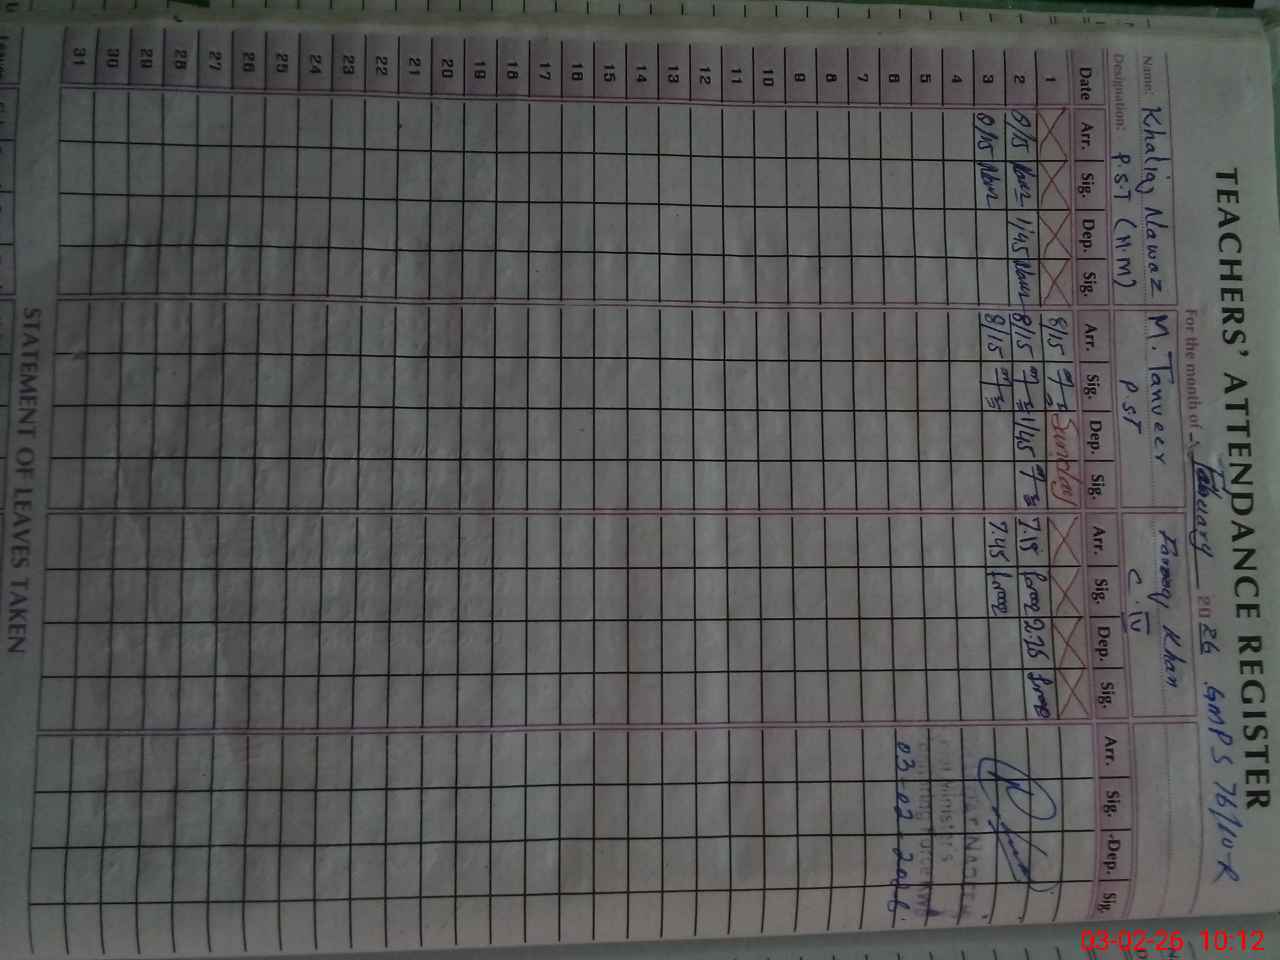 TEACHERS' ATTENDANCE REGISTER
For the month of Fabuary 2026 GMPS 76/10-R
Name: Khaliq Nawaz M. Tanveer Farooq Khan
Designation: P.S.T (H.M) P.ST C.IV
Date Arr. Sig. Dep. Sig. Arr. Sig. Dep. Sig. Arr. Sig. Dep. Sig. Arr. Sig. Dep. Sig.
1 8/15 Sunday
2 8/15 1/45 8/15 1/45 7.15 2.15
3 8/15 8/15 7.45
4
5
6 03-02-2026
7
8
9
10
11
12
13
14
15
16
17
18
19
20
21
22
23
24
25
26
27
28
29
30
31
STATEMENT OF LEAVES TAKEN
03-02-26 10:12